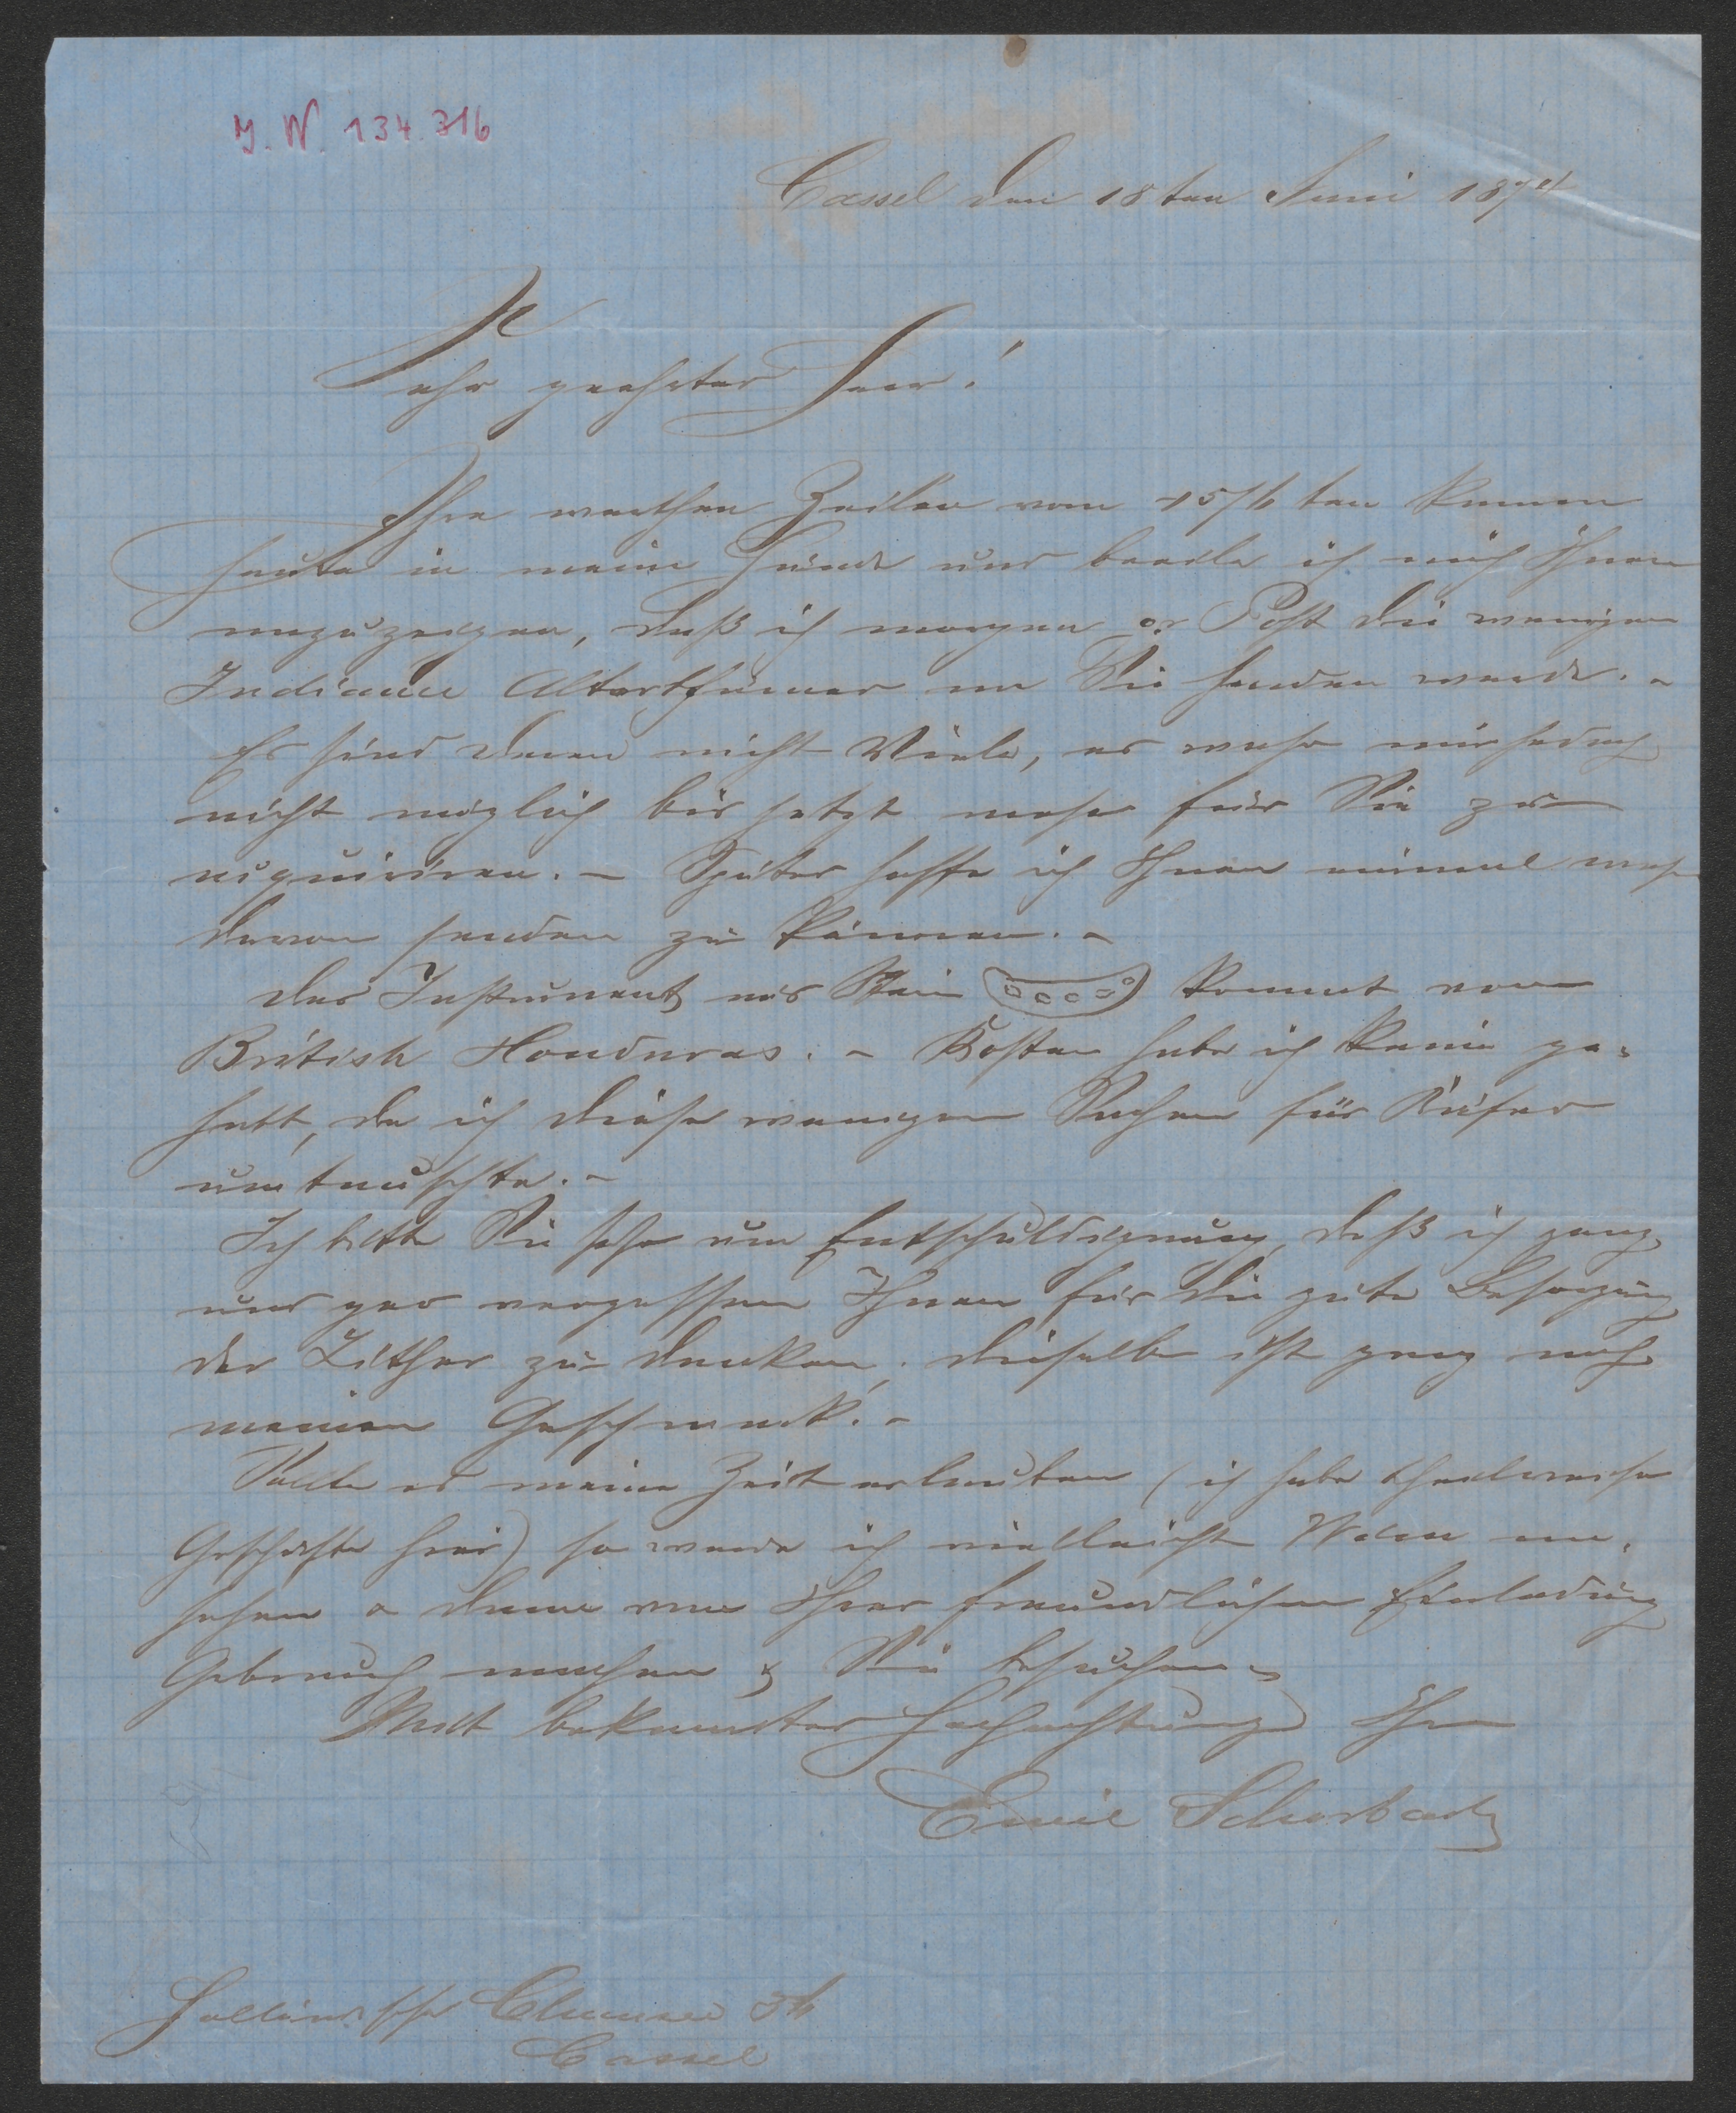 J. N. 134.316
Cassel den 18ten Juni 187
Sehr geehrter Herr!
Ihre werthen Zeilen vom 15/6 ten kamen
heute in meine Hände und beeile ich mich Ihnen
anzuzeigen, daß ich morgen pr Post die wenigen
Indianer Alterthümer an Sie senden werde. -
Es sind deren nicht Viele, es wahr mir jedoch
nicht möglich bis jetzt mehr für Sie zu
aquiriren. - Später hoffe ich Ihnen einmal mehr
davon senden zu können. -
Das Instrument aus Stein kommt von
British Honduras. - Kosten habe ich keine ge=
habt, da ich diese wenigen Sachen für Käfer
umtauschte. -
Ich bitte Sie sehr um Entschuldigung, daß ich ganz
und gar vergessen Ihnen für die gute Besorgung
der Zither zu danken, dieselbe ist ganz nach
meinem Geschmack. -
Sollte es meine Zeit erlauben (ich habe theilweise
Geschäfte hier) so werde ich vielleicht Wien an=
sehen & dann von Ihrer freundlichen Einladung
Gebrauch machen & Sie besuchen.
Mit bekannter Hochachtung Ihr
Emil
Holländische 36
Cassel